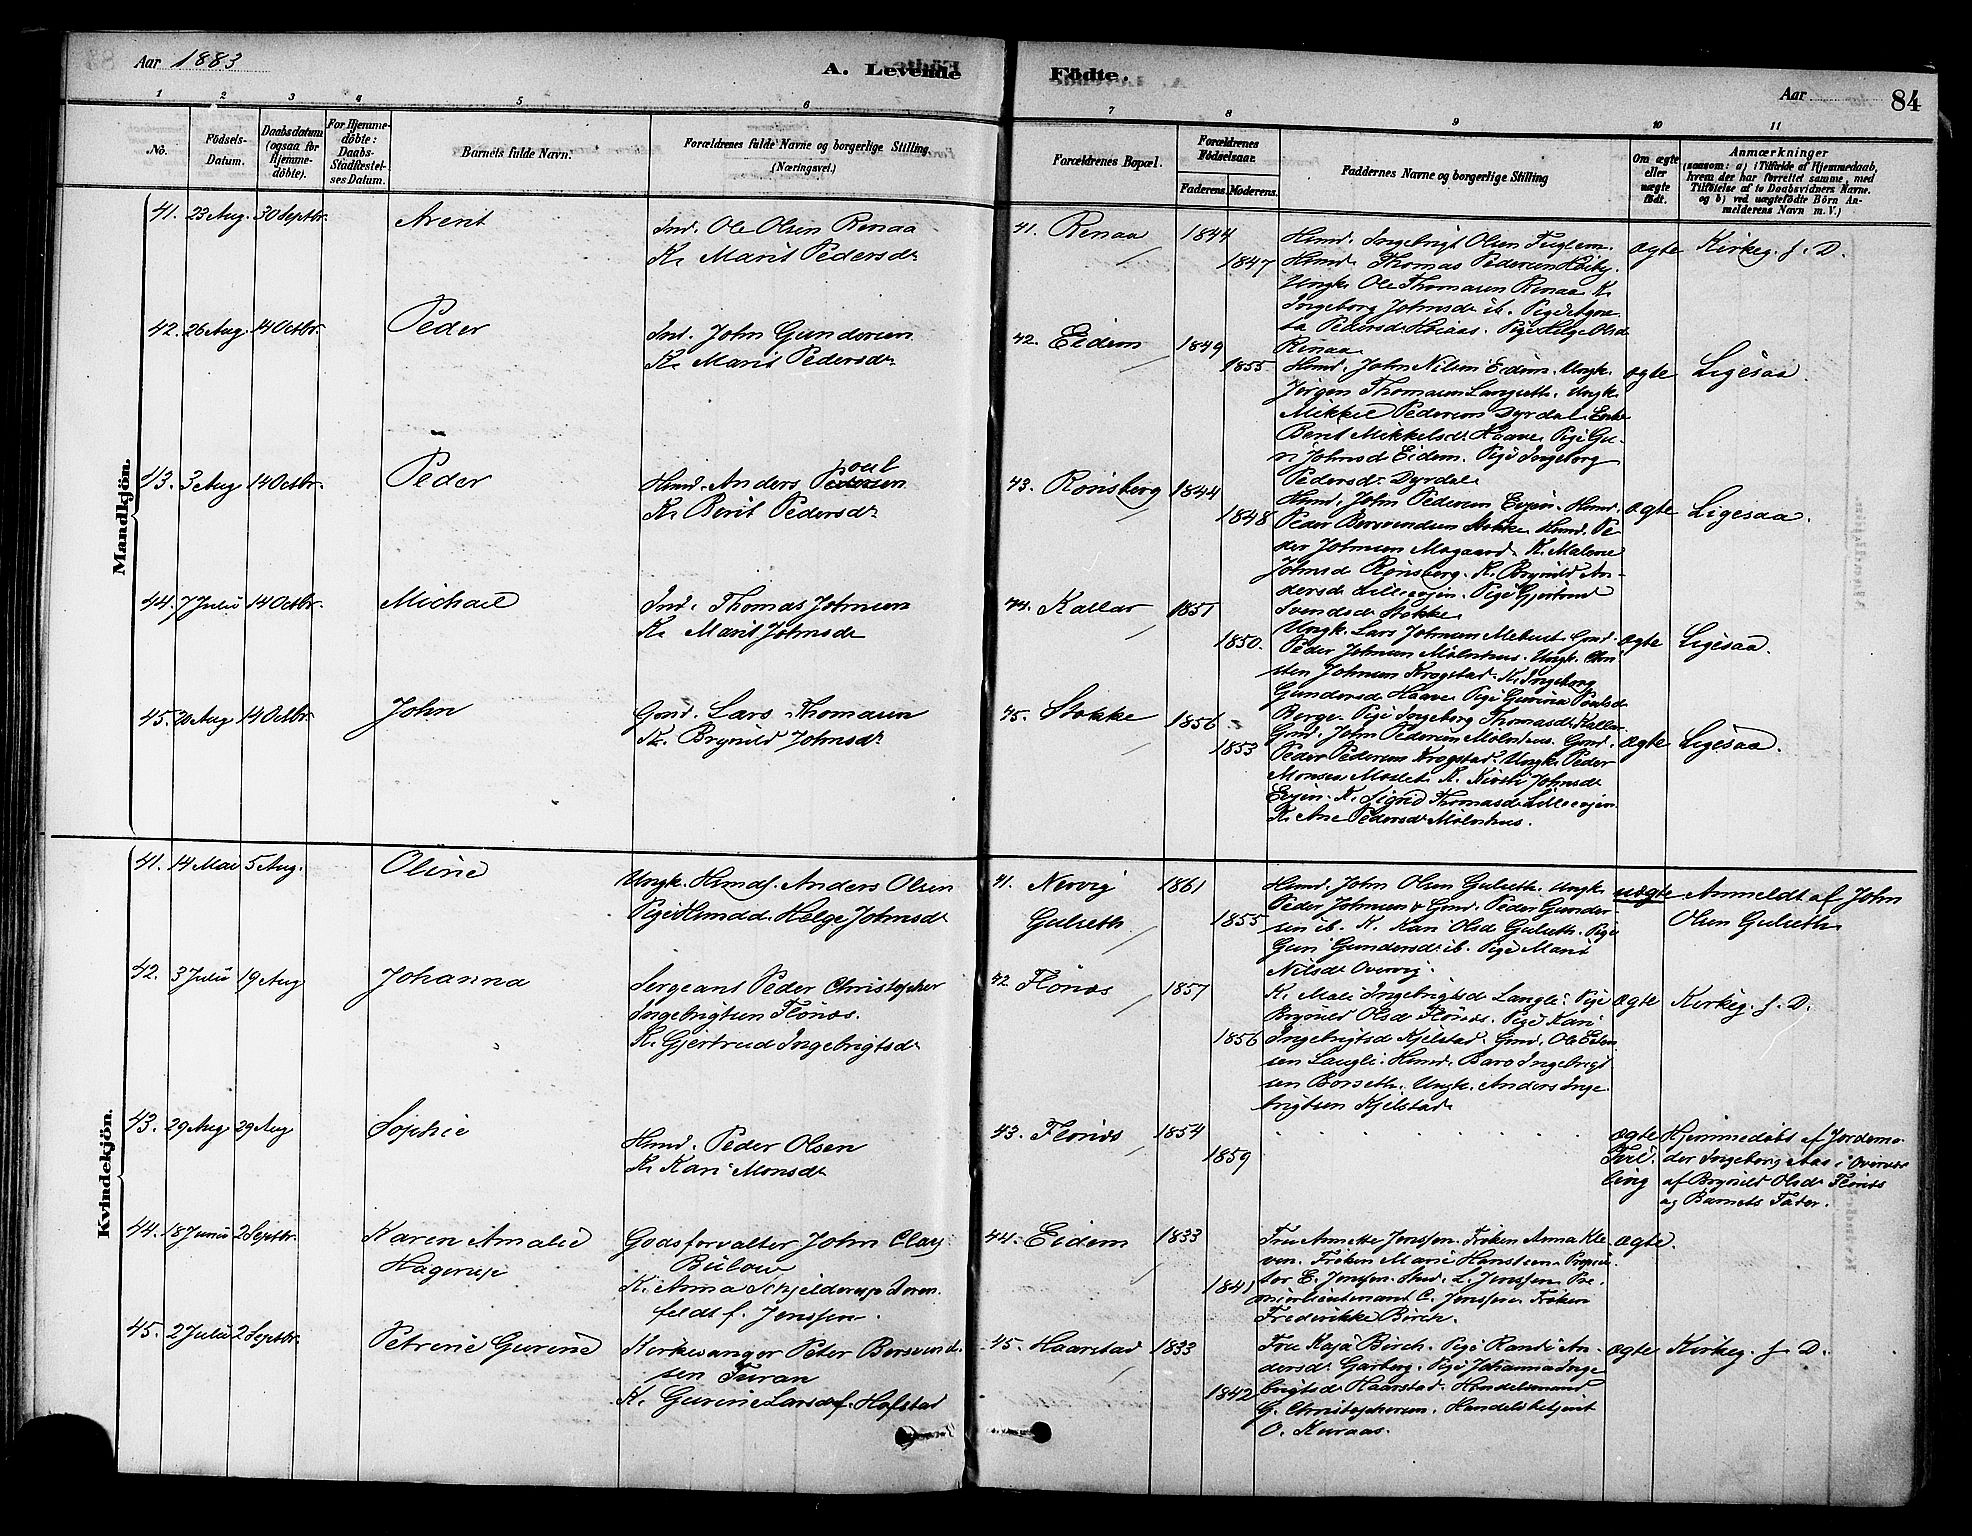 Aar 1883
A. Levende
Födte.
Aar
84
1 2 3 4 5 6 7 8 9 10 11
No.
Födsels-
Datum.
Daabsdatum
(ogsaa for
Hjemme-
döbte).
For Hjemme-
döbte:
Daabs-
Stadfæstel-
ses Datum.
Barnets fulde Navn.
Forældrenes fulde Navne og borgerlige Stilling
(Næringsvei.)
Forældrenes Bopæl.
Forældrenes
Födselsaar.
Faderens. Moderens.
Faddernes Navne og borgerlige Stilling
Om ægte
eller
uægte
födt.
Anmærkninger
(saasom: a) i Tilfælde af Hjemmedaab,
hvem der har forrettet samme, med
Tilföielse af to Daabsvidners Navne.
og b) ved uægtefödte Börn An-
melderens Navn m. V.)
Mandkjön.
41. 23 Aug. 30 Septbr.
Arent
Ind. Ole Olsen Renaa
K. Marit Pedersdr
41. Renaa 1844
1847
Husmd. Ingebrigt Olsen Fuglem.
Husmd. Thomas Pedersen Høiby.
Ungk. Ole Thomasen Renaa K.
Ingeborg Johnsdr ib.
Renaa
ægte Kirkeg. f. D.
42. 26 Aug. 14 Octbr.
Peder
Ind. John Gundersen
K. Marit Pedersdr
42. Eidem 1849
1855
Husmd. John Nilsen Eidem. Ungk.
Jørgen Thomasen Langseth. Ungk.
Mikkel Pedersen Dyrdal. Enke
Berit Mikkelsdr Haave. Pige Gu-
ri Johnsd Eidem. Pige Ingeborg
Pedersdr Dyrdal
ægte Ligesaa.
43. 3 Aug 14 Octbr.
Peder
Husmd. Anders Poul
K. Berit Pedersdr
43. Rønsberg 1844
1848
Husmd. John Pedersen Evjen. Husmd.
Peder Bersvendsen Stokke. Husmd. Pe-
der Johnsen Mogaard. K. Malene
Johnsd Rønsberg. K. Brynild An-
dersd. Lilleevjen. Pige Gjertrud
Svendsdr Stokke
ægte Ligesaa.
44. 7 Juli 14 Octbr.
Michael
Ind. Thomas Johnsen
K. Marit Johnsdr
44. Kallar 1851
1850.
Ungk. Lars Johnsen Mebust. Gmd.
Peder Johnsen Mølnhus. Ungk. Chri-
sten Johnsen Krogstad. K. Ingeborg
Gundersdr Haave. Pige Gurina Poulsdr
Berge. Pige Ingeborg Thomasdr Kallar
ægte Ligesaa.
45. 20 Aug 14 Octbr.
John
Gmd. Lars Thomasen
K. Brynild Johnsdr
45. Stokke 1856
1853
Gmd. John Pedersen Mølnhus. Gmd.
Peder Pedersen Krogstad. Ungk. Peder
Monsen Moslet. K. Kirsti Johnsdr
Evjen. K. Sigrid Thomasdr Lilleevjen.
K. Ane Pedersdr Mølnhus.
ægte Ligesaa.
Kvindekjön.
41. 14 Mai 5 Aug.
Oline
Ungk. Husmdf. Anders Olsen
Pige Husmdd. Helge Johnsdr
41. Nervig 1861
Gulseth 1855
Husmd. John Olsen Gulseth. Ungk.
Peder Johnsen & Gmd. Peder Gunder-
sen ib. K. Kari Olsd Gulseth. Pige
Guri Gundersdr ib. Pige Marit
Nilsdr Overvig.
uægte Anmeldt af John
Olsen Gulseth
42. 3 Juli 19 Aug
Johanna
Sergeant Peder Christopher
Ingebrigtsen Flønæs.
K. Gjertrud Ingebrigtsdr
42 Flønæs 1857
1856
K. Mali Ingebrigtsd Langli. Pige
Brynild Olsdr Flønæs. Pige Kari
Ingebrigtsdr Kjelstad. Gmd. Ole Esten-
sen Langli. Husmd. Baro Ingebrigt
sen Borseth. Ungk. Anders Inge-
brigtsen Kjelstad
ægte Kirkeg. f. D.
43. 29 Aug 29 Aug
Sophie
Husmd. Peder Olsen
K. Kari Monsdr
43. Flønæs 1854
1859
ægte
Tvil-
ling
Hjemmedøbt af Jordemo-
der Ingeborg Aas i Overvær
af Brynild Olsdr Flønæs
og Barnets Fader.
44. 18 Juni 2 Septbr.
Karen Amalie
Hagerup
Godsforvalter John Clay
Bülow
K. Anna Schjelderup Doren-
feldt f. Jenssen
44. Eidem 1833
1841
Fru Annette Jenssen. Frøken Anna Kle-
ven. Frøken Marie Hansteen. Proprie-
tær E. Jenssen. Stud. L. Jenssen. Pre-
mierlieutenant C. Jenssen. Frøken
Frederikke Birch.
ægte.
45. 2 Juli 2 Septbr.
Petrine Gurine
Kirkesanger Peter Bersvend-
sen Furan
K. Gurine Larsd f. Hofstad
45. Haarstad 1833
1842
Fru Kaja Birch. Pige Randi An-
dersdr Garberg. Pige Johanna Inge-
brigtsdr Haarstad. Handelsmand
G. Christophersen. Handelsbetjent
O. Kuraas.
ægte Kirkeg. f. D.